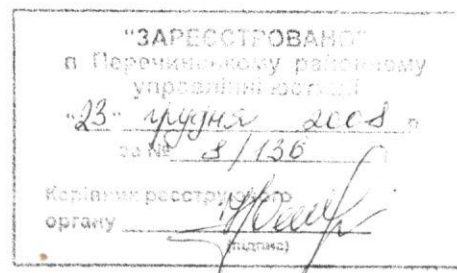 "ЗАРЕЄСТРОВАНО"
в Перечинському районному
управлінні юстиції
"23" грудня 2008 р
за № 8/136
Керівник реєструючого
органу
(підпис)